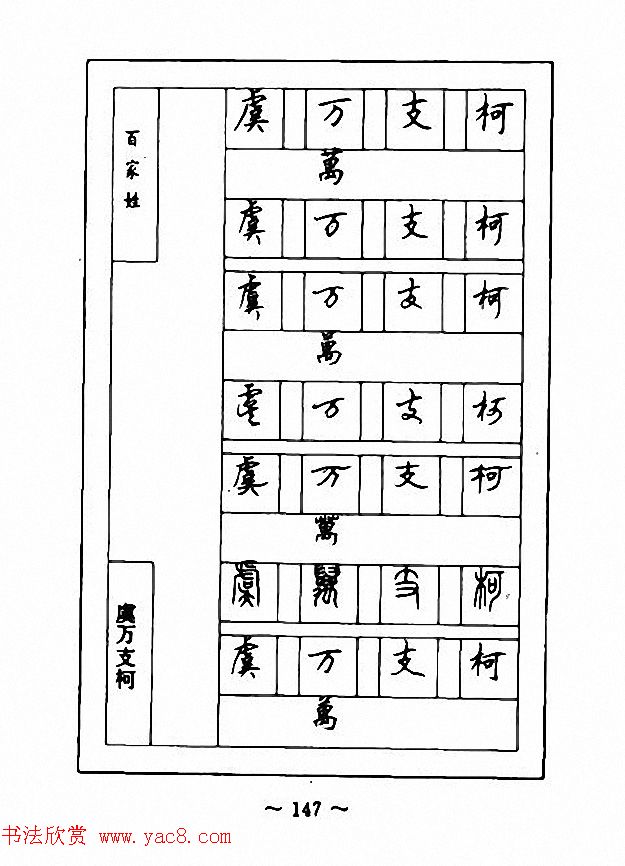 百家姓
虞万支柯
虞 万 支 柯
萬
虞 万 支 柯
虞 万 支 柯
萬
虞 万 支 柯
虞 万 支 柯
萬
虞 萬 支 柯
虞 万 支 柯
萬
~ 147 ~
书法欣赏 www.yac8.com